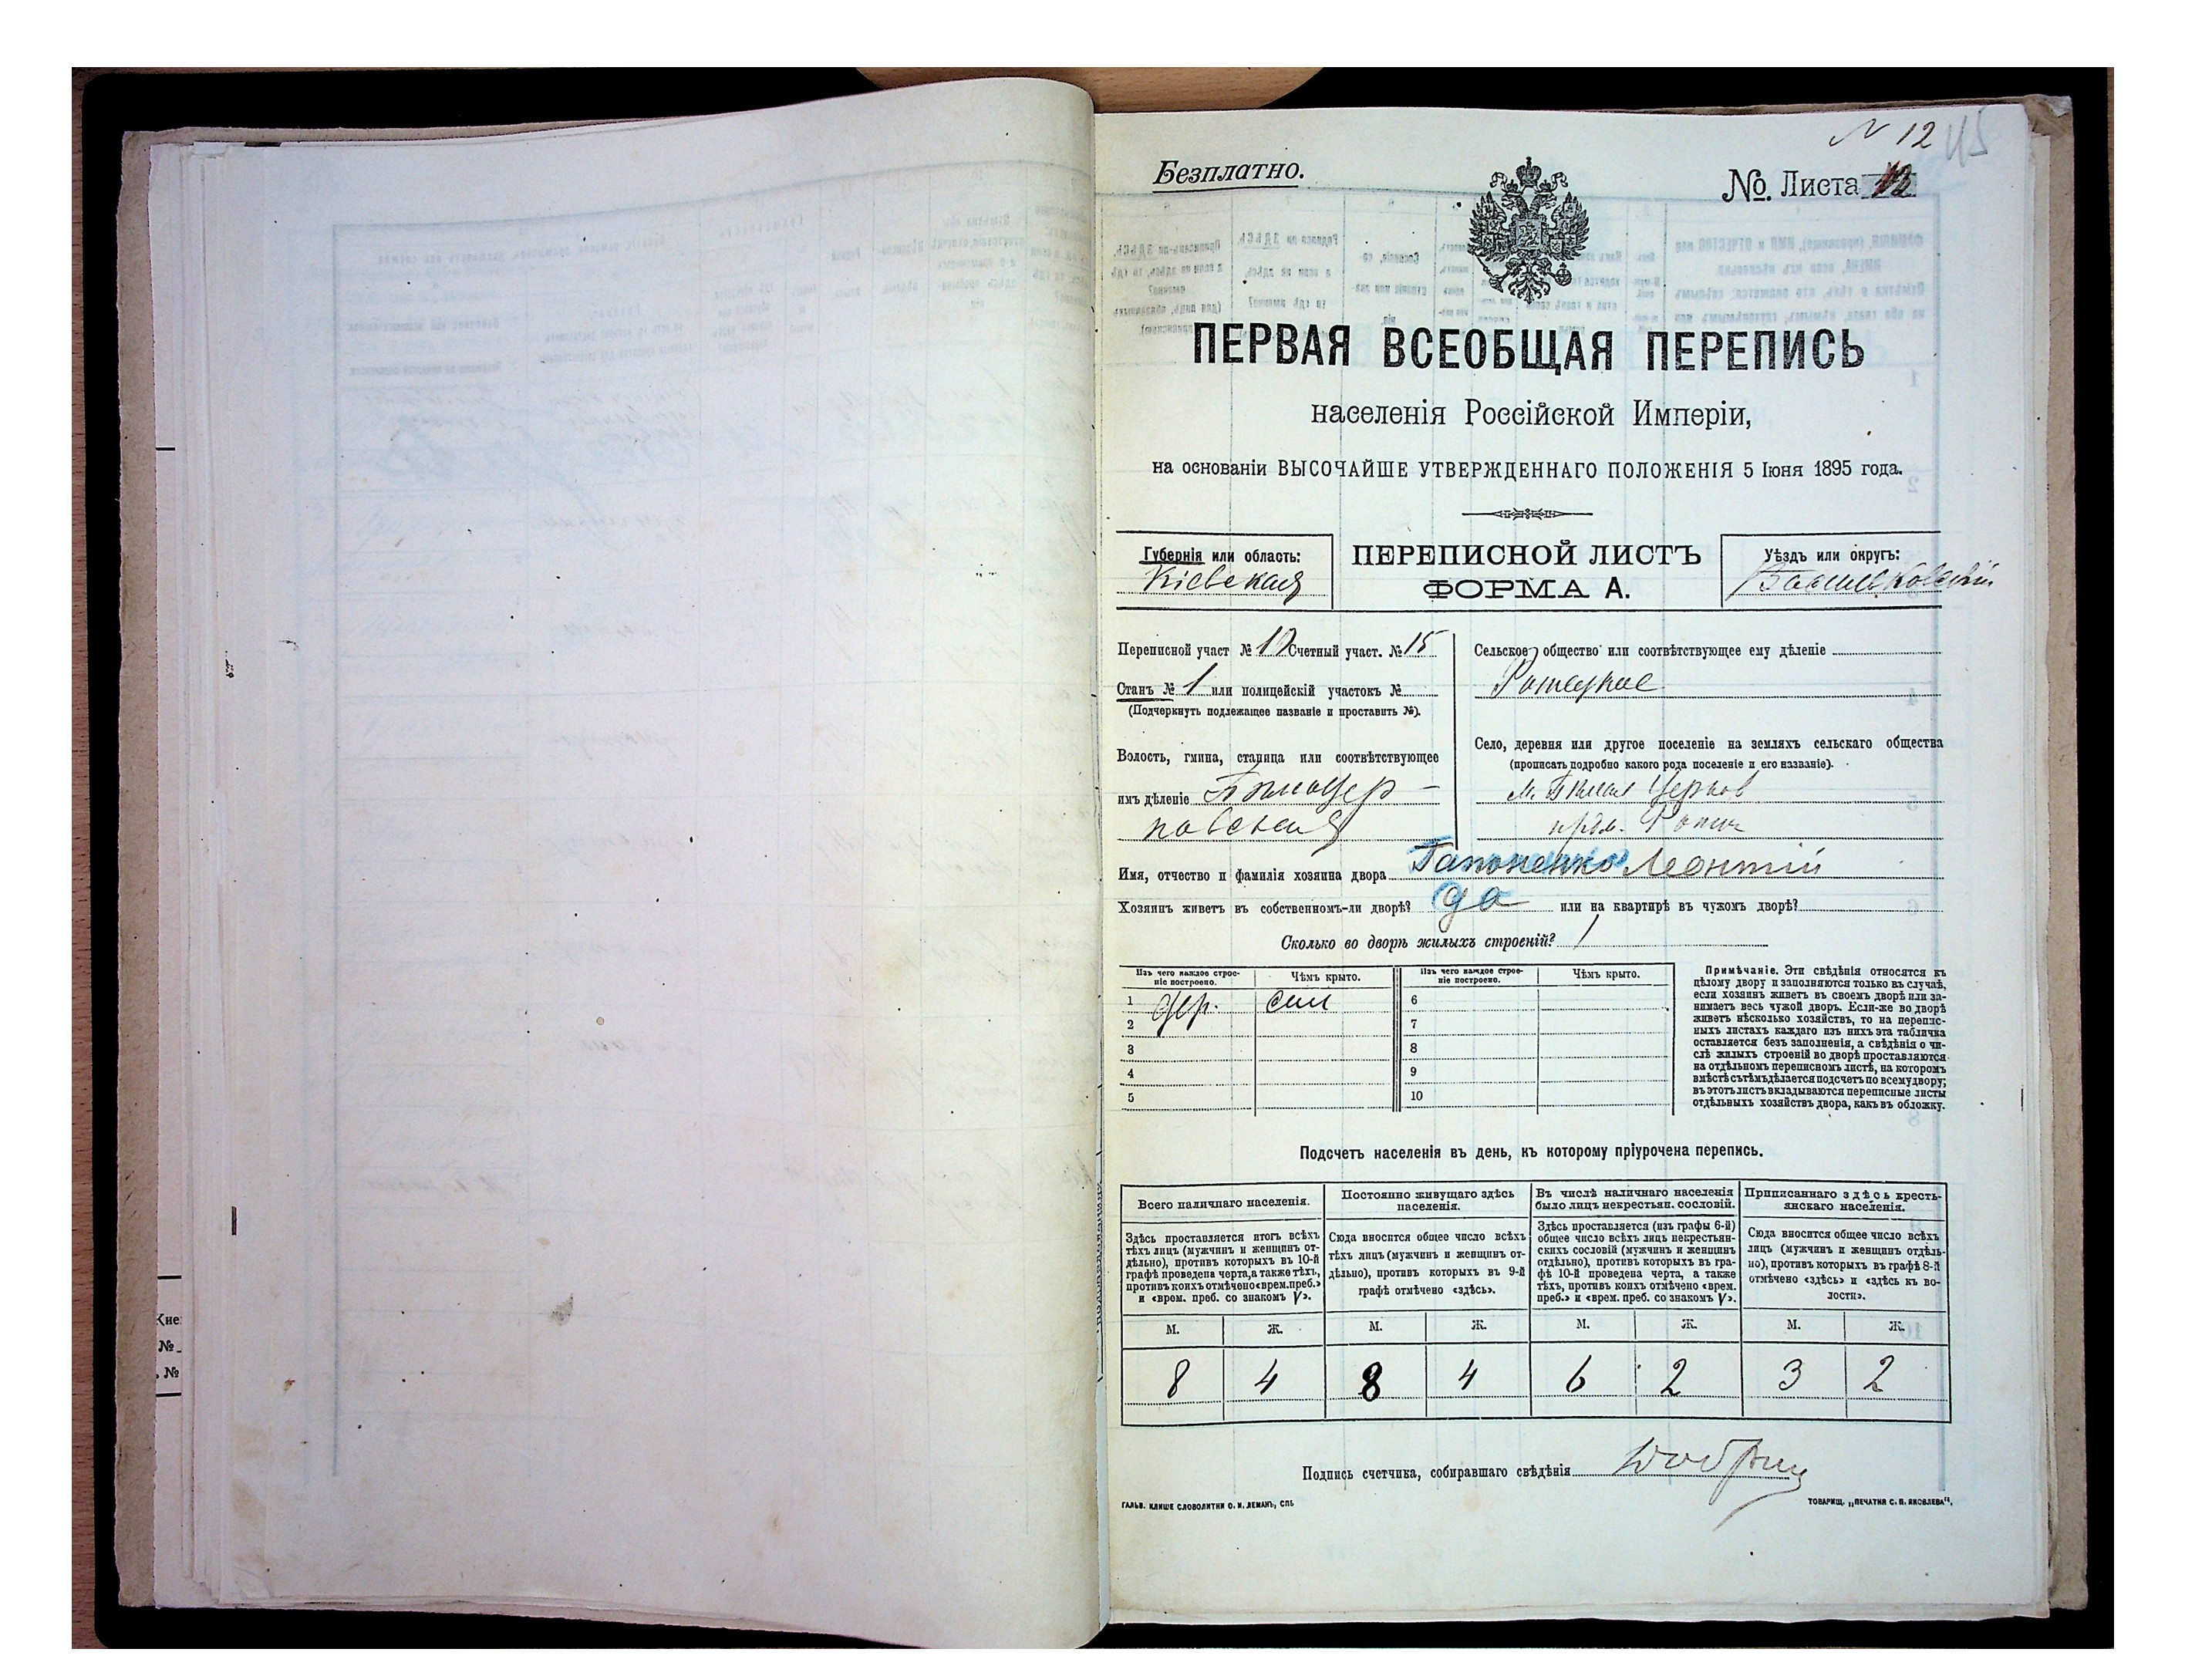 N 12 45
Безплатно.
№. Листа 12
ПЕРВАЯ ВСЕОБЩАЯ ПЕРЕПИСЬ
населенія Россійской Имперіи,
на основаніи ВЫСОЧАЙШЕ УТВЕРЖДЕННАГО ПОЛОЖЕНІЯ 5 Іюня 1895 года.
Губернія или область:
Кіевская
ПЕРЕПИСНОЙ ЛИСТЪ
ФОРМА А.
Уѣздъ или округъ:
Васильковскій
Переписной участ № Счетный участ. № 15
Станъ № 1 или полицейскій участокъ №
(Подчеркнуть подлежащее названіе и проставить №).
Волость, гмина, станица или соотвѣтствующее
имъ дѣленіе Бѣлоцер-
ковская
Сельское общество или соотвѣтствующее ему дѣленіе
Село, деревня или другое поселеніе на земляхъ сельскаго общества
(прописать подробно какого рода поселеніе и его названіе).
м. Бѣлая Церков
Имя, отчество и фамилія хозяина двора Гапоненко Леонтій
Хозяинъ живетъ въ собственномъ-ли дворѣ? да или на квартирѣ въ чужомъ дворѣ?
Сколько во дворѣ жилыхъ строеній? 1
Изъ чего каждое строе-
ніе построено.
Чѣмъ крыто.
Изъ чего каждое строе-
ніе построено.
Чѣмъ крыто.
1 дер. 6
2 7
3 8
4 9
5 10
Примѣчаніе. Эти свѣдѣнія относятся къ
цѣлому двору и заполняются только въ случаѣ,
если хозяинъ живетъ въ своемъ дворѣ или за-
нимаетъ весь чужой дворъ. Если-же во дворѣ
живетъ нѣсколько хозяйствъ, то на перепис-
ныхъ листахъ каждаго изъ нихъ эта табличка
оставляется безъ заполненія, а свѣдѣнія о чи-
слѣ жилыхъ строеній во дворѣ проставляются
на отдѣльномъ переписномъ листѣ, на которомъ
вмѣстѣ съ тѣмъ дѣлается подсчетъ по всему двору;
въ этотъ листъ вкладываются переписные листы
отдѣльныхъ хозяйствъ двора, какъ въ обложку.
Подсчетъ населенія въ день, къ которому пріурочена перепись.
Всего наличнаго населенія.
Здѣсь проставляется итогъ всѣхъ
тѣхъ лицъ (мужчинъ и женщинъ от-
дѣльно), противъ которыхъ въ 10-й
графѣ проведена черта, а также тѣхъ,
противъ коихъ отмѣчено «врем. преб.»
и «врем. преб. со знакомъ V».
Постоянно живущаго здѣсь
населенія.
Сюда вносится общее число всѣхъ
тѣхъ лицъ (мужчинъ и женщинъ от-
дѣльно), противъ которыхъ въ 9-й
графѣ отмѣчено «здѣсь».
Въ числѣ наличнаго населенія
было лицъ некрестьян. сословій.
Здѣсь проставляется (изъ графы 6-й)
общее число всѣхъ лицъ некрестьян-
скихъ сословій (мужчинъ и женщинъ
отдѣльно), противъ которыхъ въ гра-
фѣ 10-й проведена черта, а также
тѣхъ, противъ коихъ отмѣчено «врем.
преб.» и «врем. преб. со знакомъ V».
Приписаннаго здѣсь кресть-
янскаго населенія.
Сюда вносится общее число всѣхъ
лицъ (мужчинъ и женщинъ отдѣль-
но), противъ которыхъ въ графѣ 8-й
отмѣчено «здѣсь» и «здѣсь къ во-
лости».
М. Ж. М. Ж. М. Ж. М. Ж.
8 4 8 4 6 2 3 2
Подпись счетчика, собиравшаго свѣдѣнія
ГАЛЬВ. КЛИШЕ СЛОВОЛИТНИ О. И. ЛЕМАНЪ, СПБ
ТОВАРИЩ. „ПЕЧАТНЯ С. П. ЯКОВЛЕВА".